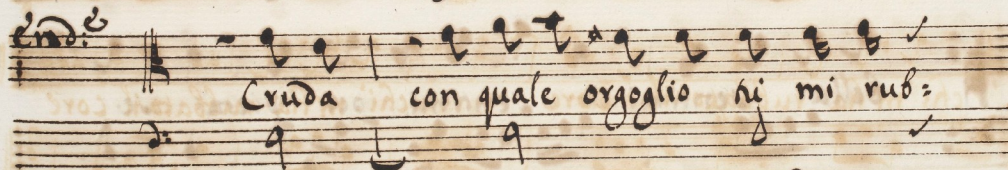 End:e
Cruda con quale orgoglio tu mi rub=